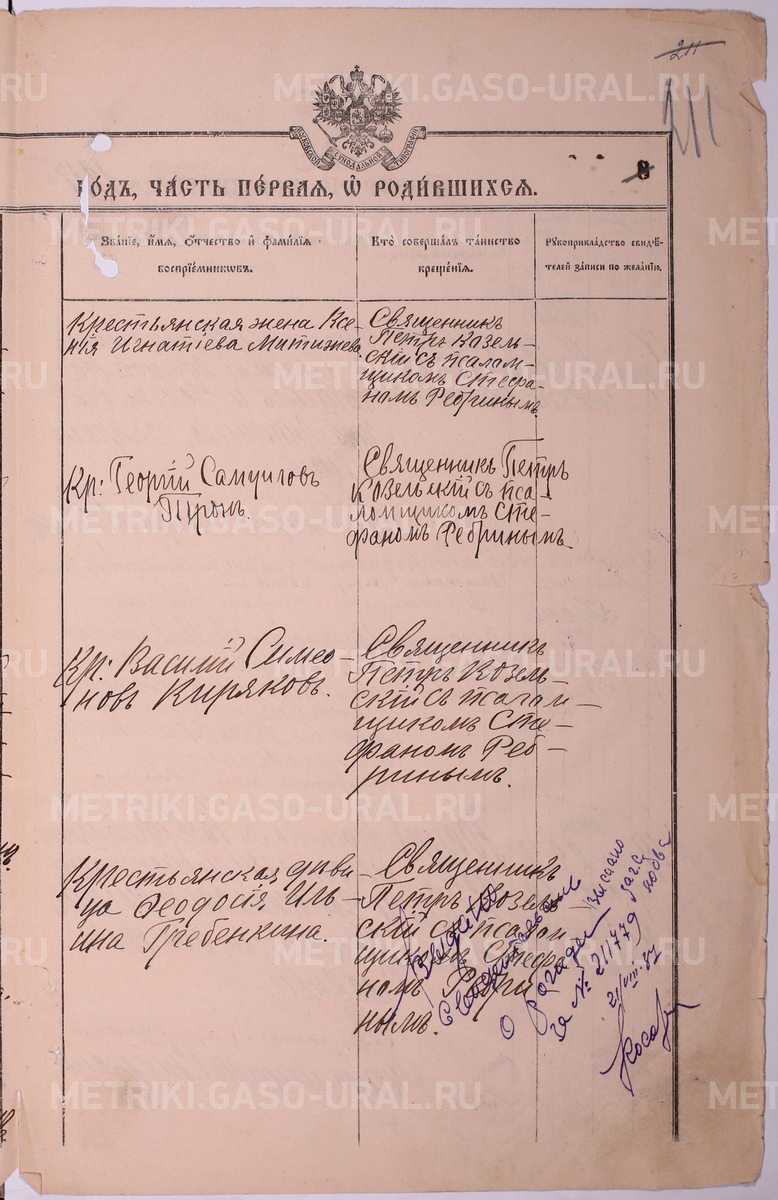 211
211
МОСКОВСКОЙ СѴНОДАЛЬНОЙ ТИПОГРАФІИ
8
ГОДЪ, ЧА́СТЬ ПЕ́РВАЯ, Ѡ҆ РОДИ́ВШИХСЯ.
Зва́нїе, и҆́мя, ѻ҆́тчество и҆ фами́лїя
воспрїе́мникѡвъ.
Кто̀ соверша́лъ та́инство
креще́нїя.
Рꙋкоприкла́дство свидѣ́-
телей за́писи по жела́нїю.
Крестьянская жена Ксе-
нія Игнатіева Матижева.
Священникъ
Петръ Козель-
скій съ псалам-
щикомъ Стефа-
номъ Ребринымъ.
Кр: Георгій Самуиловъ
Тронъ.
Священникъ Петръ
Козельскій съ пса-
ломщикомъ Сте-
фаномъ Ребринымъ
Кр: Василій Симео-
новъ Киряковъ.
Священникъ
Петръ Козель-
скій съ псалам-
щикомъ Сте-
фаномъ Реб-
ринымъ.
Крестьянская дѣви-
ца Ѳеодосія Иль-
ина Гребенкина.
Священникъ
Петръ Козель-
скій съ псалом-
щикомъ Стефа-
номъ Ребри-
нымъ.
Выдано
свидетельство
о рождении
за № 211779
21/VIII-57
METRIKI.GASO-URAL.RU